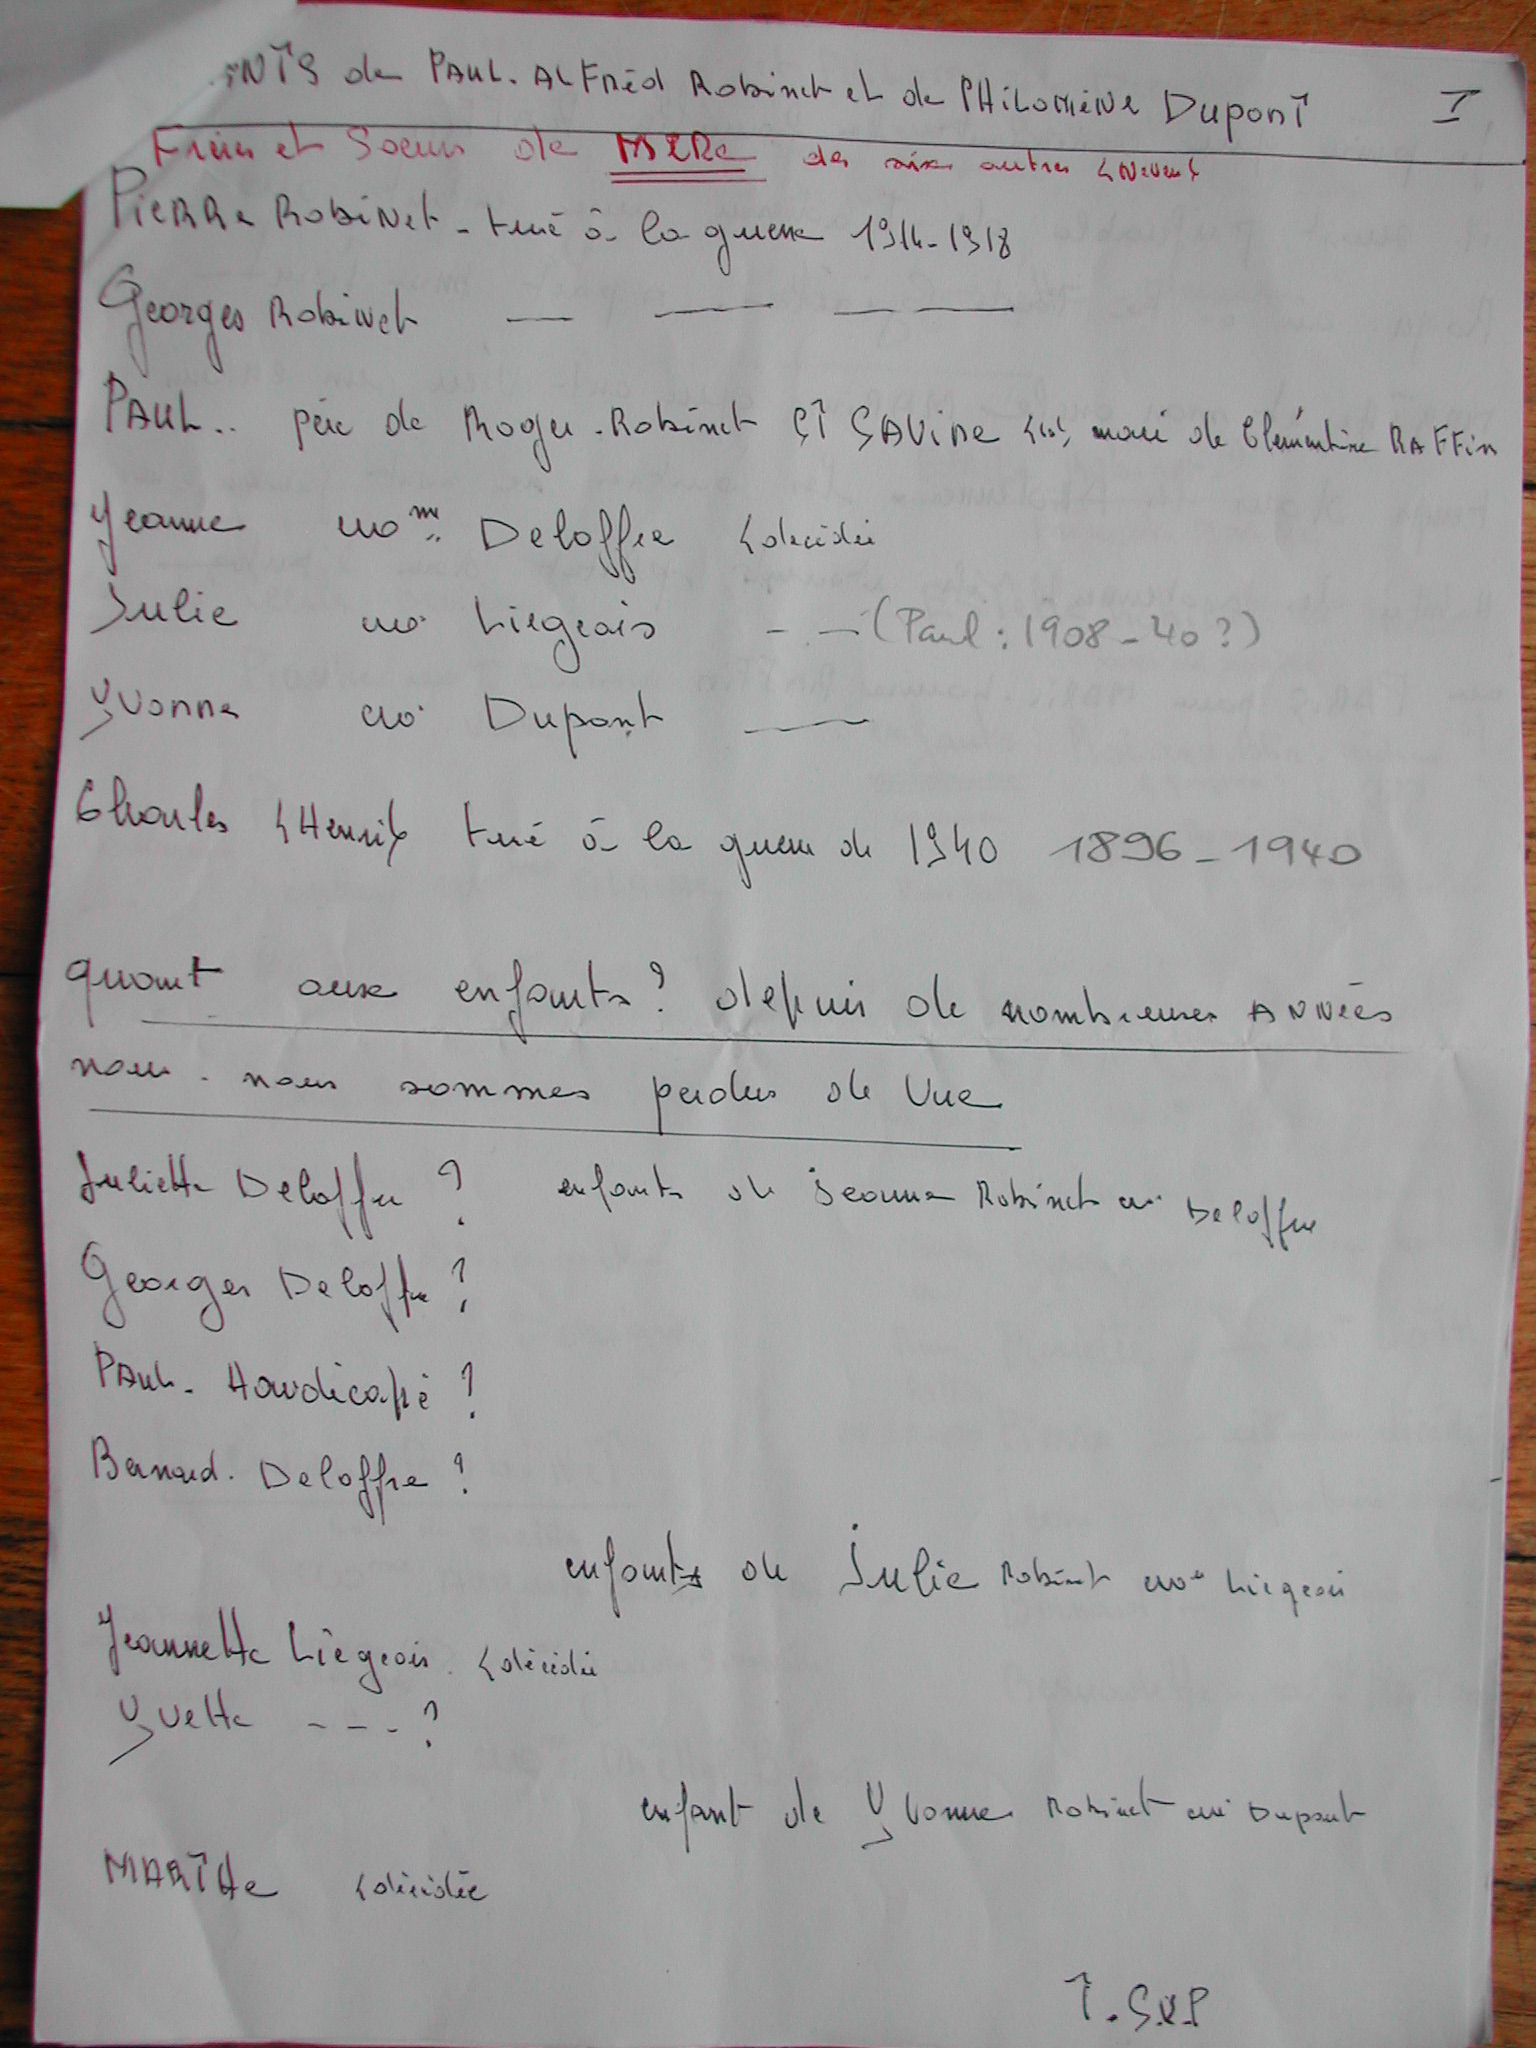 NTS de PAUL. ALFRéd Robinet et de PHiLOMèNe Dupont I
Frères et Soeurs de MERe des six autres
PieRRe RobiNet - tué à la guerre 1914-1918
Georges RobiNet — — — —
PAUL.. père de Roger. Robinet ET SAViNe mari de Clémentine RAFFin
Yeanne Deloffre (décédée
Julie Liegeois - - — (Paul : 1908 - 40 ?)
Yvonne Dupont —
Charles (Henri) tué à la guerre de 1940 1896 - 1940
quant aux enfants ? depuis de nombreuses ANNées
nous. nous sommes perdus de Vue
Juliette Deloffre ? enfants de Jeanne Robinet Deloffre
Georges Deloffre ?
PAUL. Handicapé ?
Bernard. Deloffre ?
enfants de Julie Robinet Liegeois
Jeannette Liègeois (décédée
Yvette - - - ?
enfant de Yvonne Robinet Dupont
MARTHe (décédée
T.S.V.P